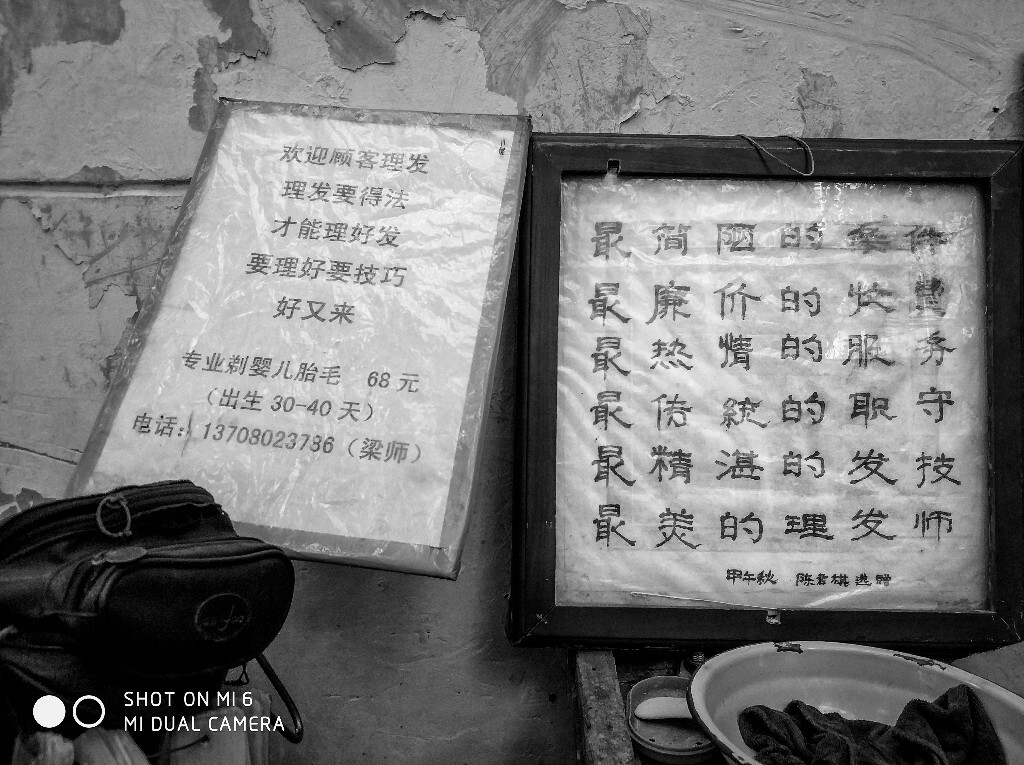 欢迎顾客理发
理发要得法
才能理好发
要理好要技巧
好又来
专业剃婴儿胎毛 68元
（出生30-40天）
电话：13708023786（梁师）
最简陋的条件
最廉价的收费
最热情的服务
最传統的职守
最精湛的发技
最美的理发师
甲午秋 陈君棋选赠
SHOT ON MI 6
MI DUAL CAMERA